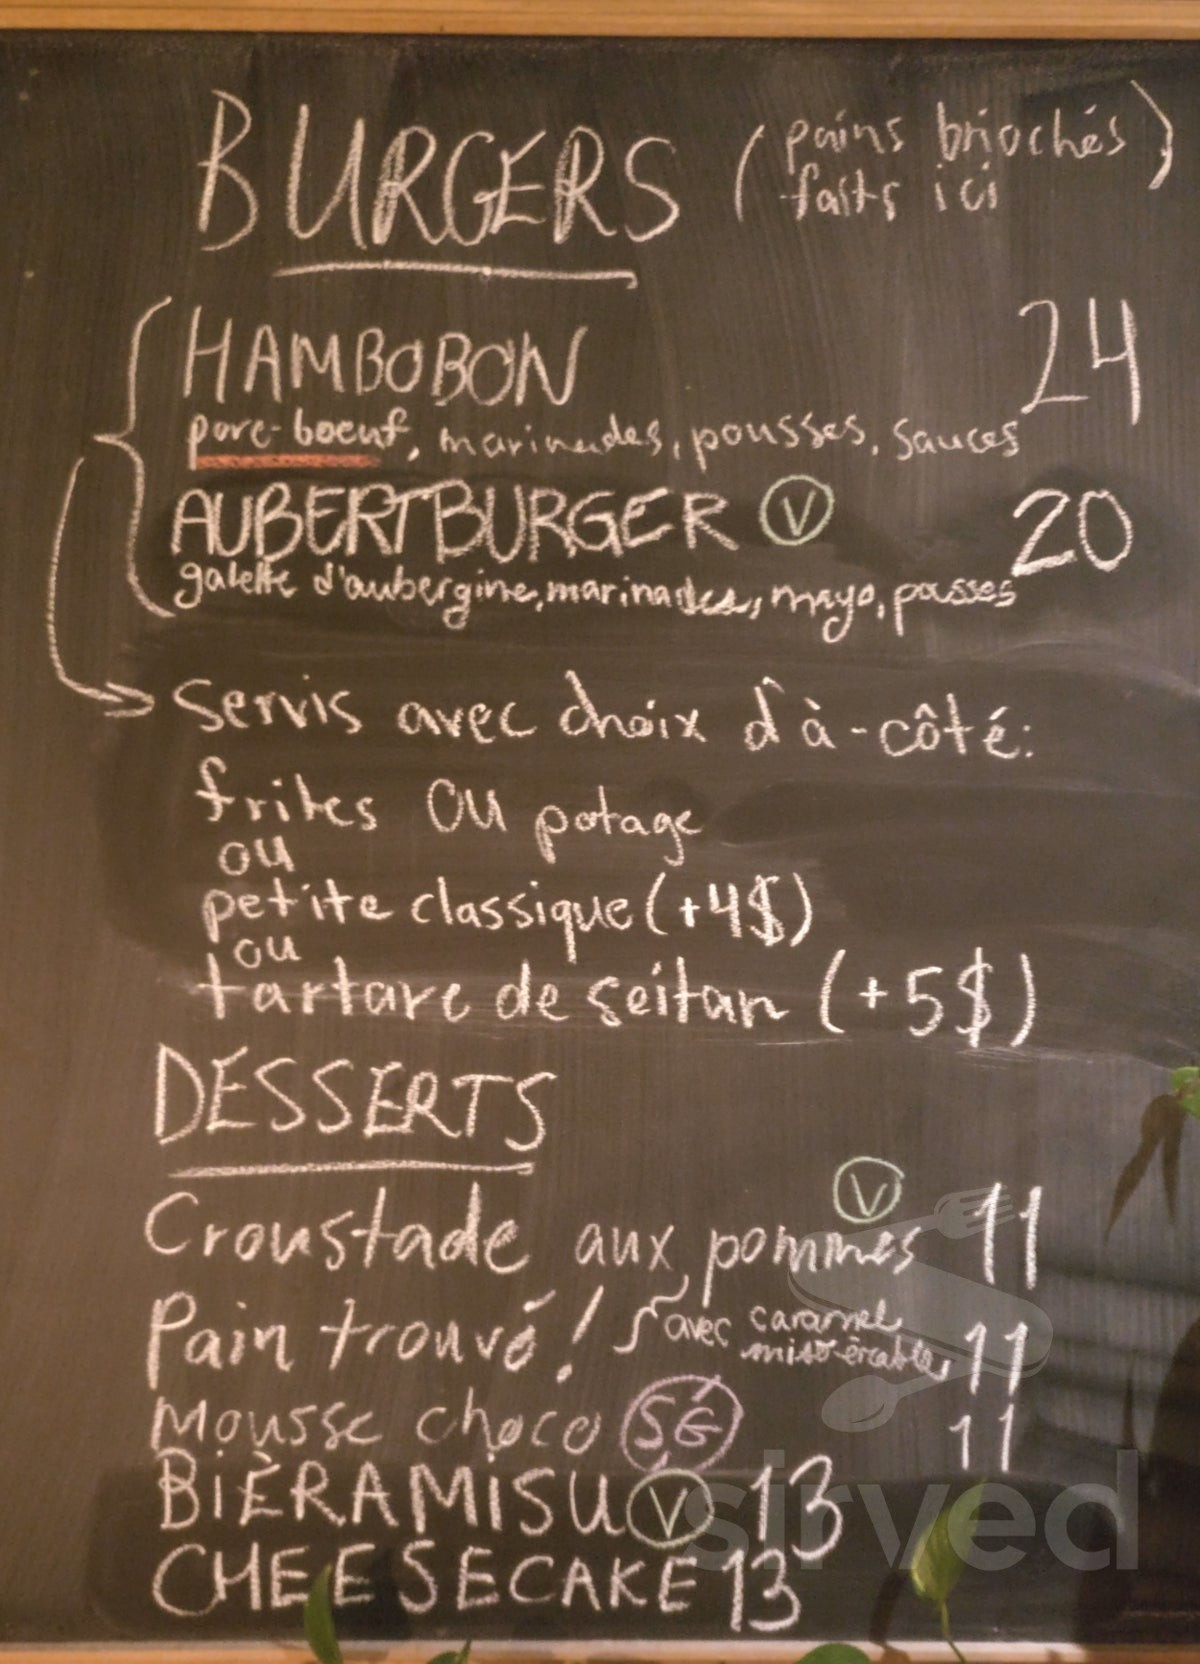 BURGERS (pains briochés
faits ici)
HAMBOBON 24
porc-boeuf, marinades, pousses, sauces
AUBERTBURGER Ⓥ 20
galette d'aubergine, marinades, mayo, pousses
servis avec choix d'à-côté:
frites OU potage
ou
petite classique (+4$)
ou
tartare de seitan (+5$)
DESSERTS
Croustade aux pommes Ⓥ 11
Pain trouvé! avec caramel 11
miso-érable
Mousse choco SG 11
BIÈRAMISU Ⓥ 13
CHEESECAKE 13
sirved